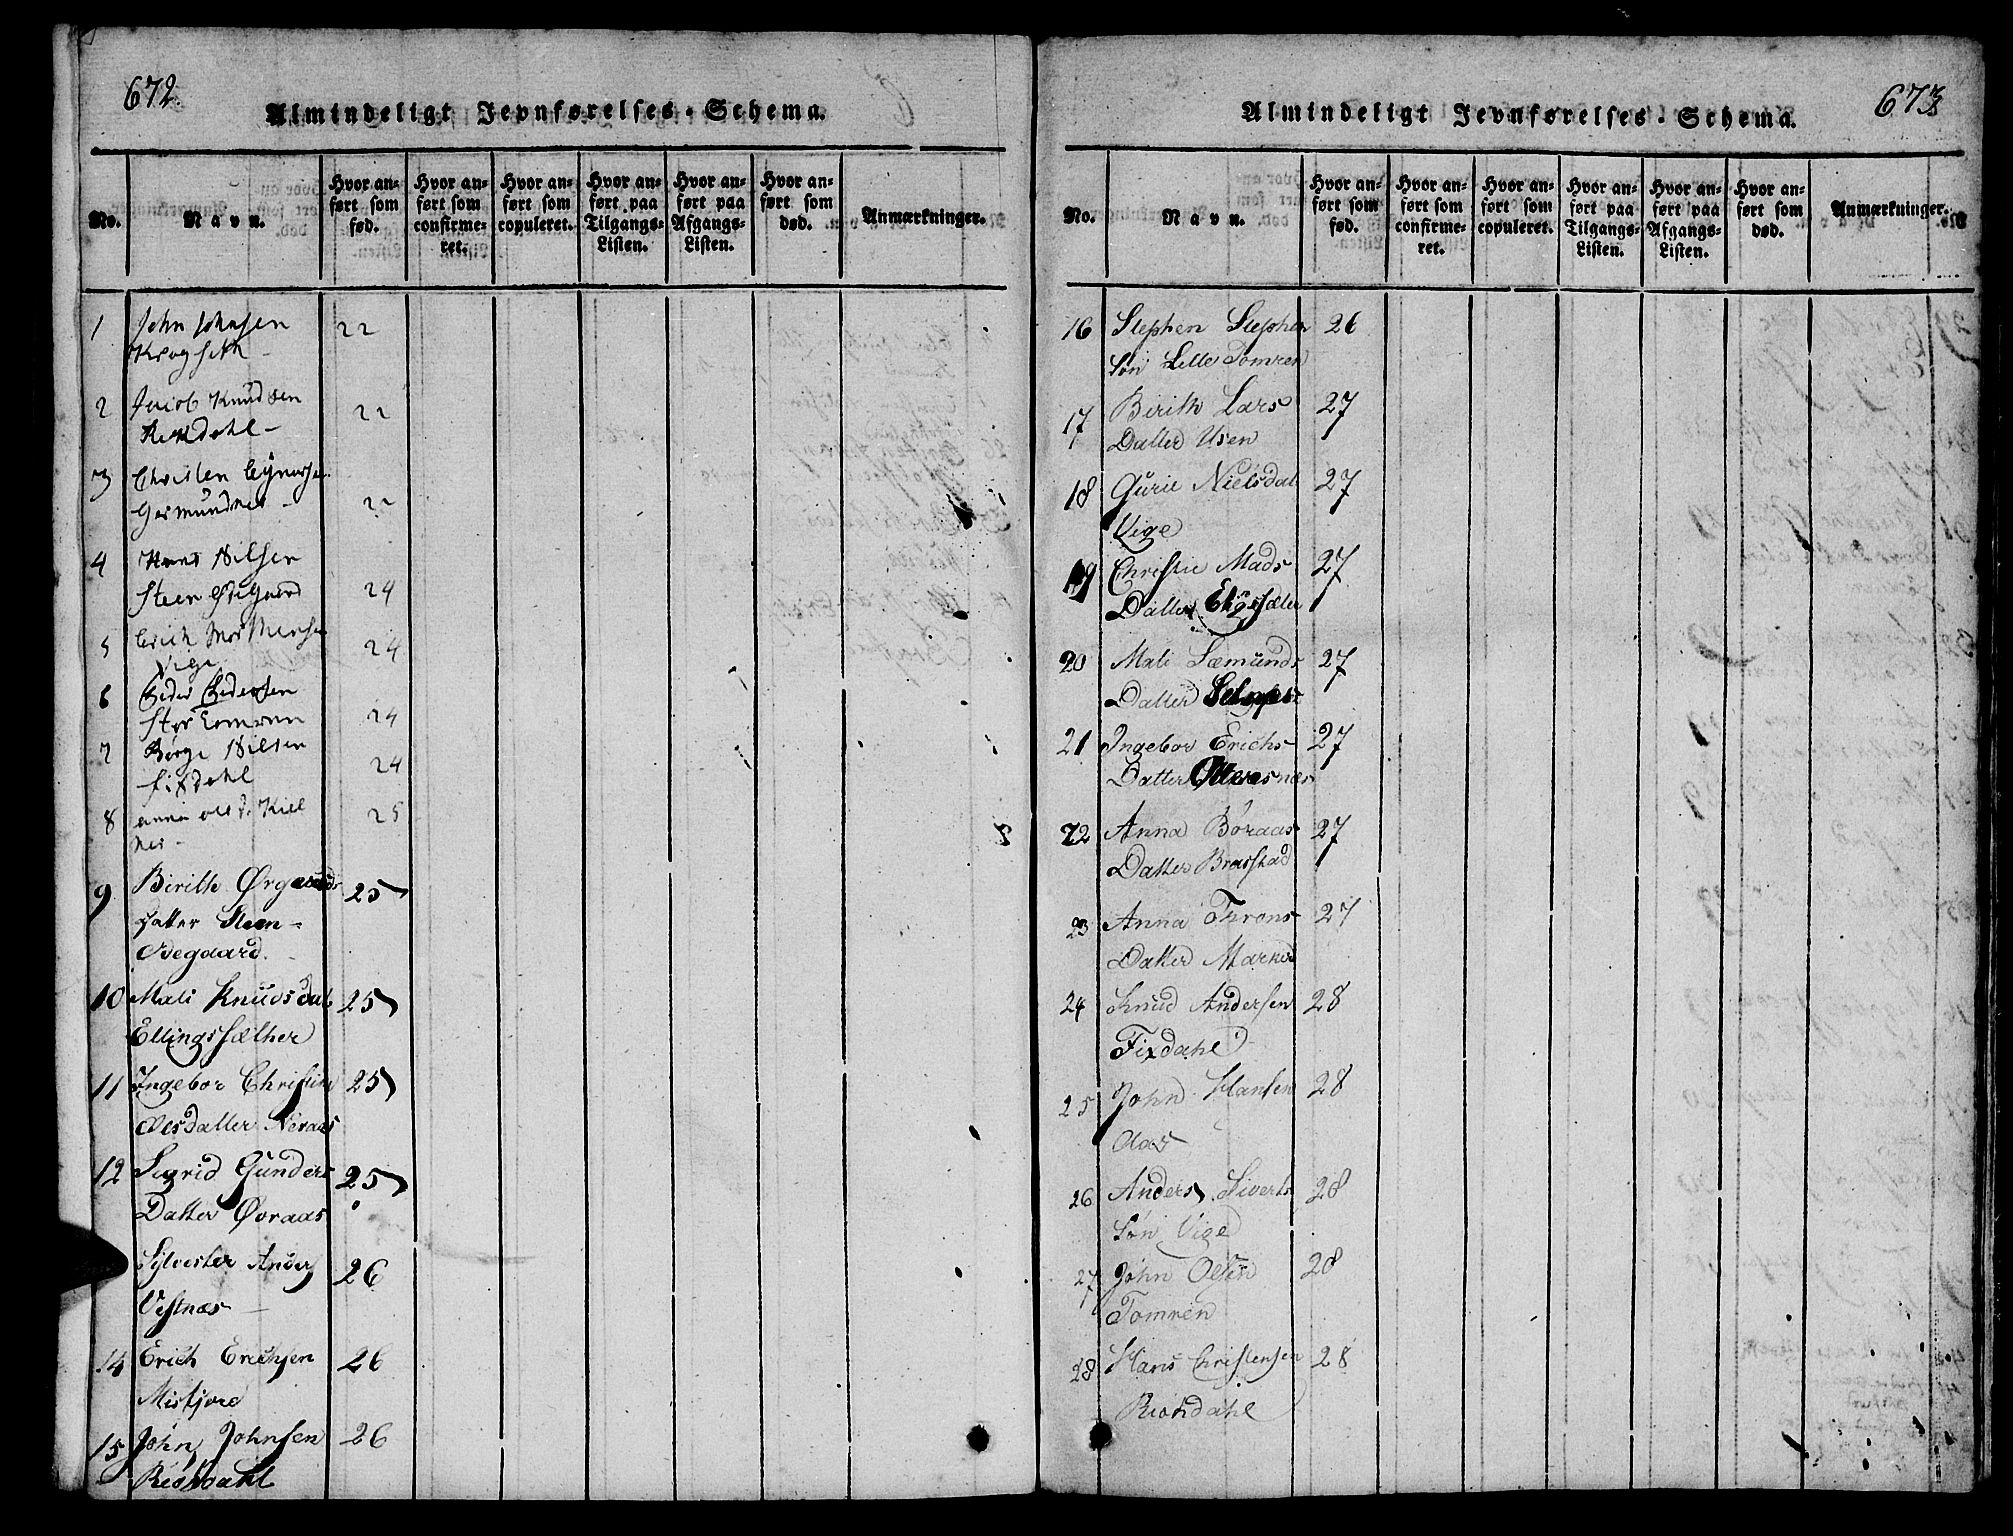 672.
Almindeligt Jevnførelses-Schema.
No.
Navn.
Hvor an-
ført som
fød.
Hvor an-
ført som
confirme-
ret.
Hvor an-
ført som
copuleret.
Hvor an-
ført paa
Tilgangs-
Listen.
Hvor an-
ført paa
Afgangs-
Listen.
Hvor an-
ført som
død.
Anmærkninger.
1 John Johnsen 22
Krogseth
2 Jacob Knudsen 22
3 Christen
22
4 Hans Nilsen
Steen Ødegaard 24
5 Erich 24
Vige
6 Peder Pedersen
Stor Tomren 24
7 Børge Nilsen
Fixdahl 24
8 25
9 Birithe 25
Datter Steen
Ødegaard.
10 Mali Knuds dat 25
Ellingssæther
11 Ingebor 25
Neraas
12 Sigrid Gunders 25
Datter Øvraas
Sylvester Anders 26
Vestnæs
14 Erich Erichsen 26
Misfjord
15 John Johnsen 26
Riøhdahl
673
Almindeligt Jevnførelses-Schema.
No.
Navn.
Hvor an-
ført som
fød.
Hvor an-
ført som
confirme-
ret.
Hvor an-
ført som
copuleret.
Hvor an-
ført paa
Tilgangs-
Listen.
Hvor an-
ført paa
Afgangs-
Listen.
Hvor an-
ført som
død.
Anmærkninger.
16 Stephen Stephen 26
Søn Lille Tomren
17 Birith Lars 27
Datter Usen
18 Gurie Nielsdat 27
Vige
19 Christie Mads 27
Datter
20 Mali Sæmunds 27
Datter
21 Ingebor Erichs 27
Datter
22 Anna Børaas 27
Datter Brastad
23 Anna Throns 27
Datter
24 Knud Andersen 28
Fixdahl
25 John Hansen 28
Aas
26 Anders Siverts 28
Søn Vige
27 John Olsen 28
Tomren
28 Hans Christensen 28
Riøndahl